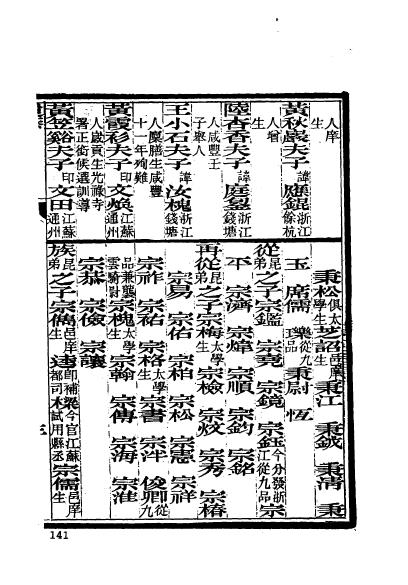 人庠生
黃秋嚴夫子諱應錕浙江餘杭
人增生
陸杏香夫子諱庭浙江錢塘
人咸豐壬子舉人
王小石夫子諱汝槐浙江錢塘
人廩膳生咸豐十一年殉難
黃霞衫夫子印文煥江蘇通州
人歲貢生光祿寺署正銜候選訓導
黃笠谿夫子印文田江蘇通州
秉松俱太學生芝詔邑庠生秉江 秉鉞 秉清 秉
玉 席儒 樂從九品秉尉 恆
從昆弟之子宗鑑 宗堯 宗鏡 宗鈺今分發浙江從九品宗
平 宗濟 宗煒 宗順 宗鈞 宗銘
再從昆弟之子宗梅太學生宗檢 宗炆 宗秀 宗椿
宗易 宗佑 宗柏 宗松 宗憲 宗祥
宗祚 宗祐 宗格太學生宗書 宗泮 俊卿從九
品兼襲雲騎尉宗槐太學生宗翰 宗傳 宗海 宗淮
宗恭 宗儉 宗讓
族昆弟之子宗儁邑庠生連即補都司樑今官江蘇試用縣丞宗儒邑庠生
三
141